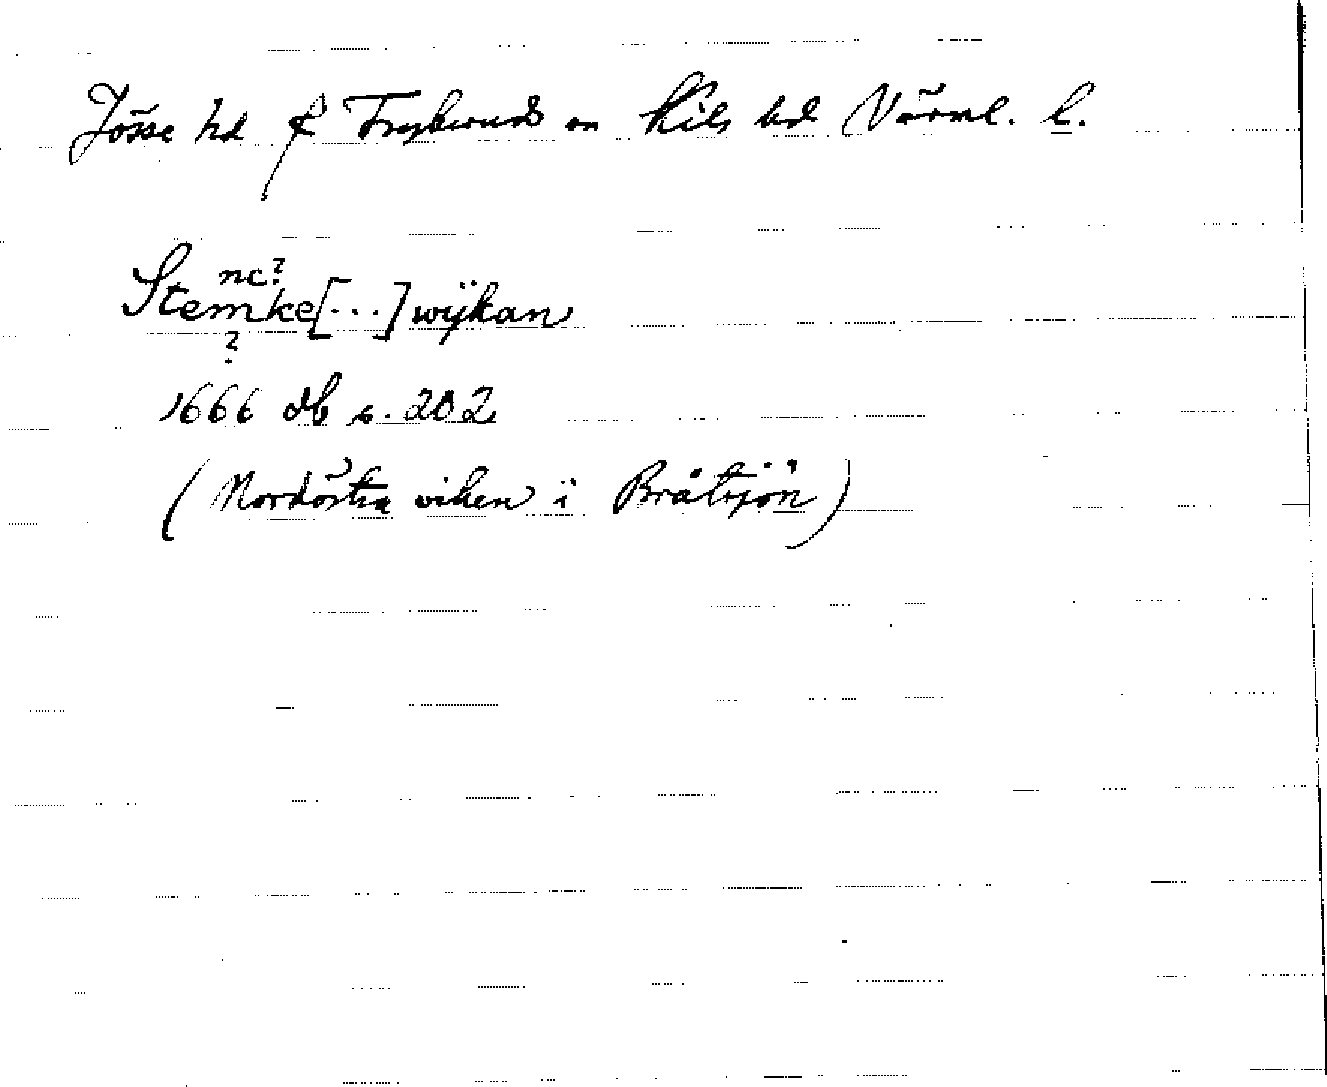 Jösse hd & Frykeruds sn Kils hd Värml. l.
nc?
Stemke[...]wÿkan
?
1666 db s. 202
(Nordöstra viken i Bråtsjön)